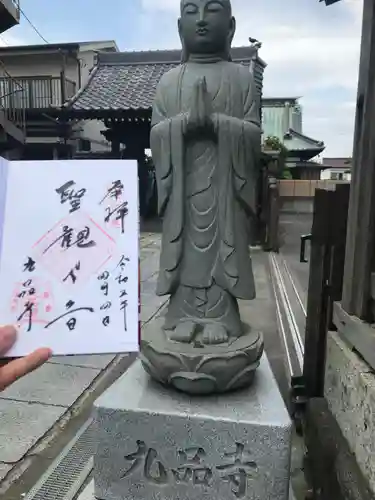 奉拝
聖観世音
令和五年
四月四日
九品寺
九品寺